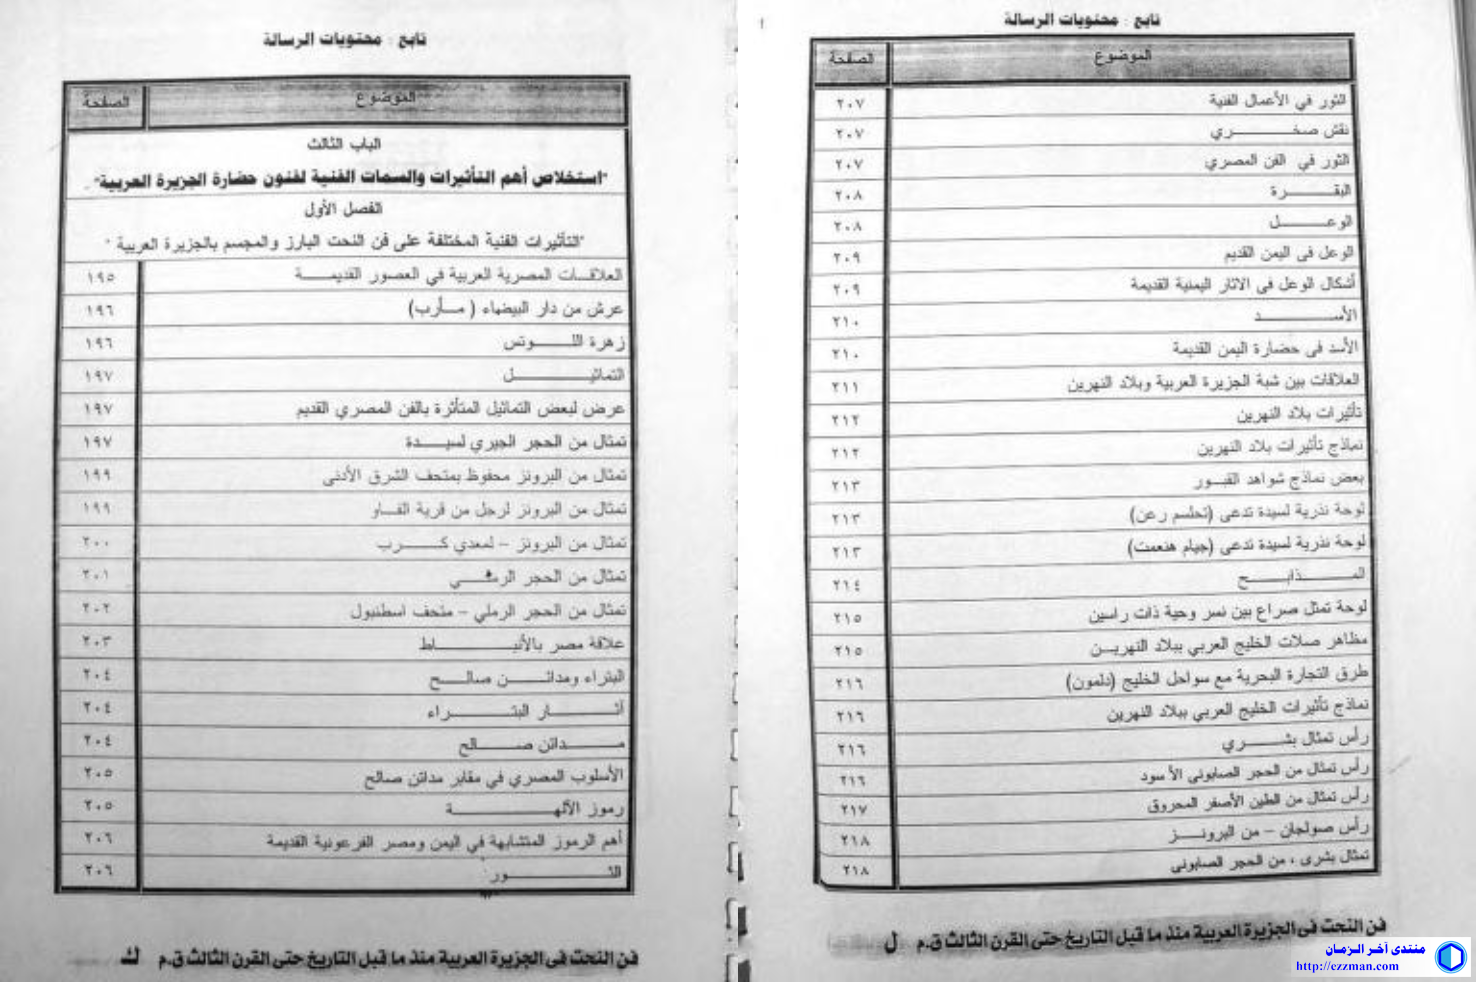 تابع : محتويات الرسالة
الموضوع الصفحة
الباب الثالث
"استخلاص أهم التأثيرات والسمات الفنية لفنون حضارة الجزيرة العربية"
الفصل الأول
"التأثيرات الفنية المختلفة على فن النحت البارز والمجسم بالجزيرة العربية"
العلاقات المصرية العربية في العصور القديمة ١٩٥
عرش من دار البيضاء (مأرب) ١٩٦
زهرة اللوتس ١٩٦
التماثيل ١٩٧
عرض لبعض التماثيل المتأثرة بالفن المصري القديم ١٩٧
تمثال من الحجر الجيري لسيدة ١٩٧
تمثال من البرونز محفوظ بمتحف الشرق الأدنى ١٩٩
تمثال من البرونز لرجل من قرية الفاو ١٩٩
تمثال من البرونز – لمعدي كرب ٢٠٠
تمثال من الحجر الرملي ٢٠١
تمثال من الحجر الرملي – متحف اسطنبول ٢٠٢
علاقة مصر بالأنباط ٢٠٣
البتراء ومدائن صالح ٢٠٤
أثار البتراء ٢٠٤
مدائن صالح ٢٠٤
الأسلوب المصري في مقابر مدائن صالح ٢٠٥
رموز الآلهة ٢٠٥
أهم الرموز المتشابهة في اليمن ومصر الفرعونية القديمة ٢٠٦
الثور ٢٠٦
فن النحت فى الجزيرة العربية منذ ما قبل التاريخ حتى القرن الثالث ق.م ك
تابع : محتويات الرسالة
الموضوع الصفحة
الثور في الأعمال الفنية ٢٠٧
نقش صخري ٢٠٧
الثور في الفن المصري ٢٠٧
البقرة ٢٠٨
الوعل ٢٠٨
الوعل فى اليمن القديم ٢٠٩
أشكال الوعل فى الاثار اليمنية القديمة ٢٠٩
الأسد ٢١٠
الأسد فى حضارة اليمن القديمة ٢١٠
العلاقات بين شبة الجزيرة العربية وبلاد النهرين ٢١١
تأثيرات بلاد النهرين ٢١٢
نماذج تأثيرات بلاد النهرين ٢١٢
بعض نماذج شواهد القبور ٢١٣
لوحة نذرية لسيدة تدعى (تحلسم رعن) ٢١٣
لوحة نذرية لسيدة تدعى (جيام هنعمت) ٢١٣
المذابح ٢١٤
لوحة تمثل صراع بين نسر وحية ذات راسين ٢١٥
مظاهر صلات الخليج العربي ببلاد النهرين ٢١٥
طرق التجارة البحرية مع سواحل الخليج (دلمون) ٢١٦
نماذج تأثيرات الخليج العربي ببلاد النهرين ٢١٦
رأس تمثال بشري ٢١٦
رأس تمثال من الحجر الصابونى الأسود ٢١٦
رأس تمثال من الطين الأصفر المحروق ٢١٧
رأس صولجان – من البرونز ٢١٨
تمثال بشرى ، من الحجر الصابونى ٢١٨
فن النحت فى الجزيرة العربية منذ ما قبل التاريخ حتى القرن الثالث ق.م ل
منتدى آخر الزمان
http://ezzman.com